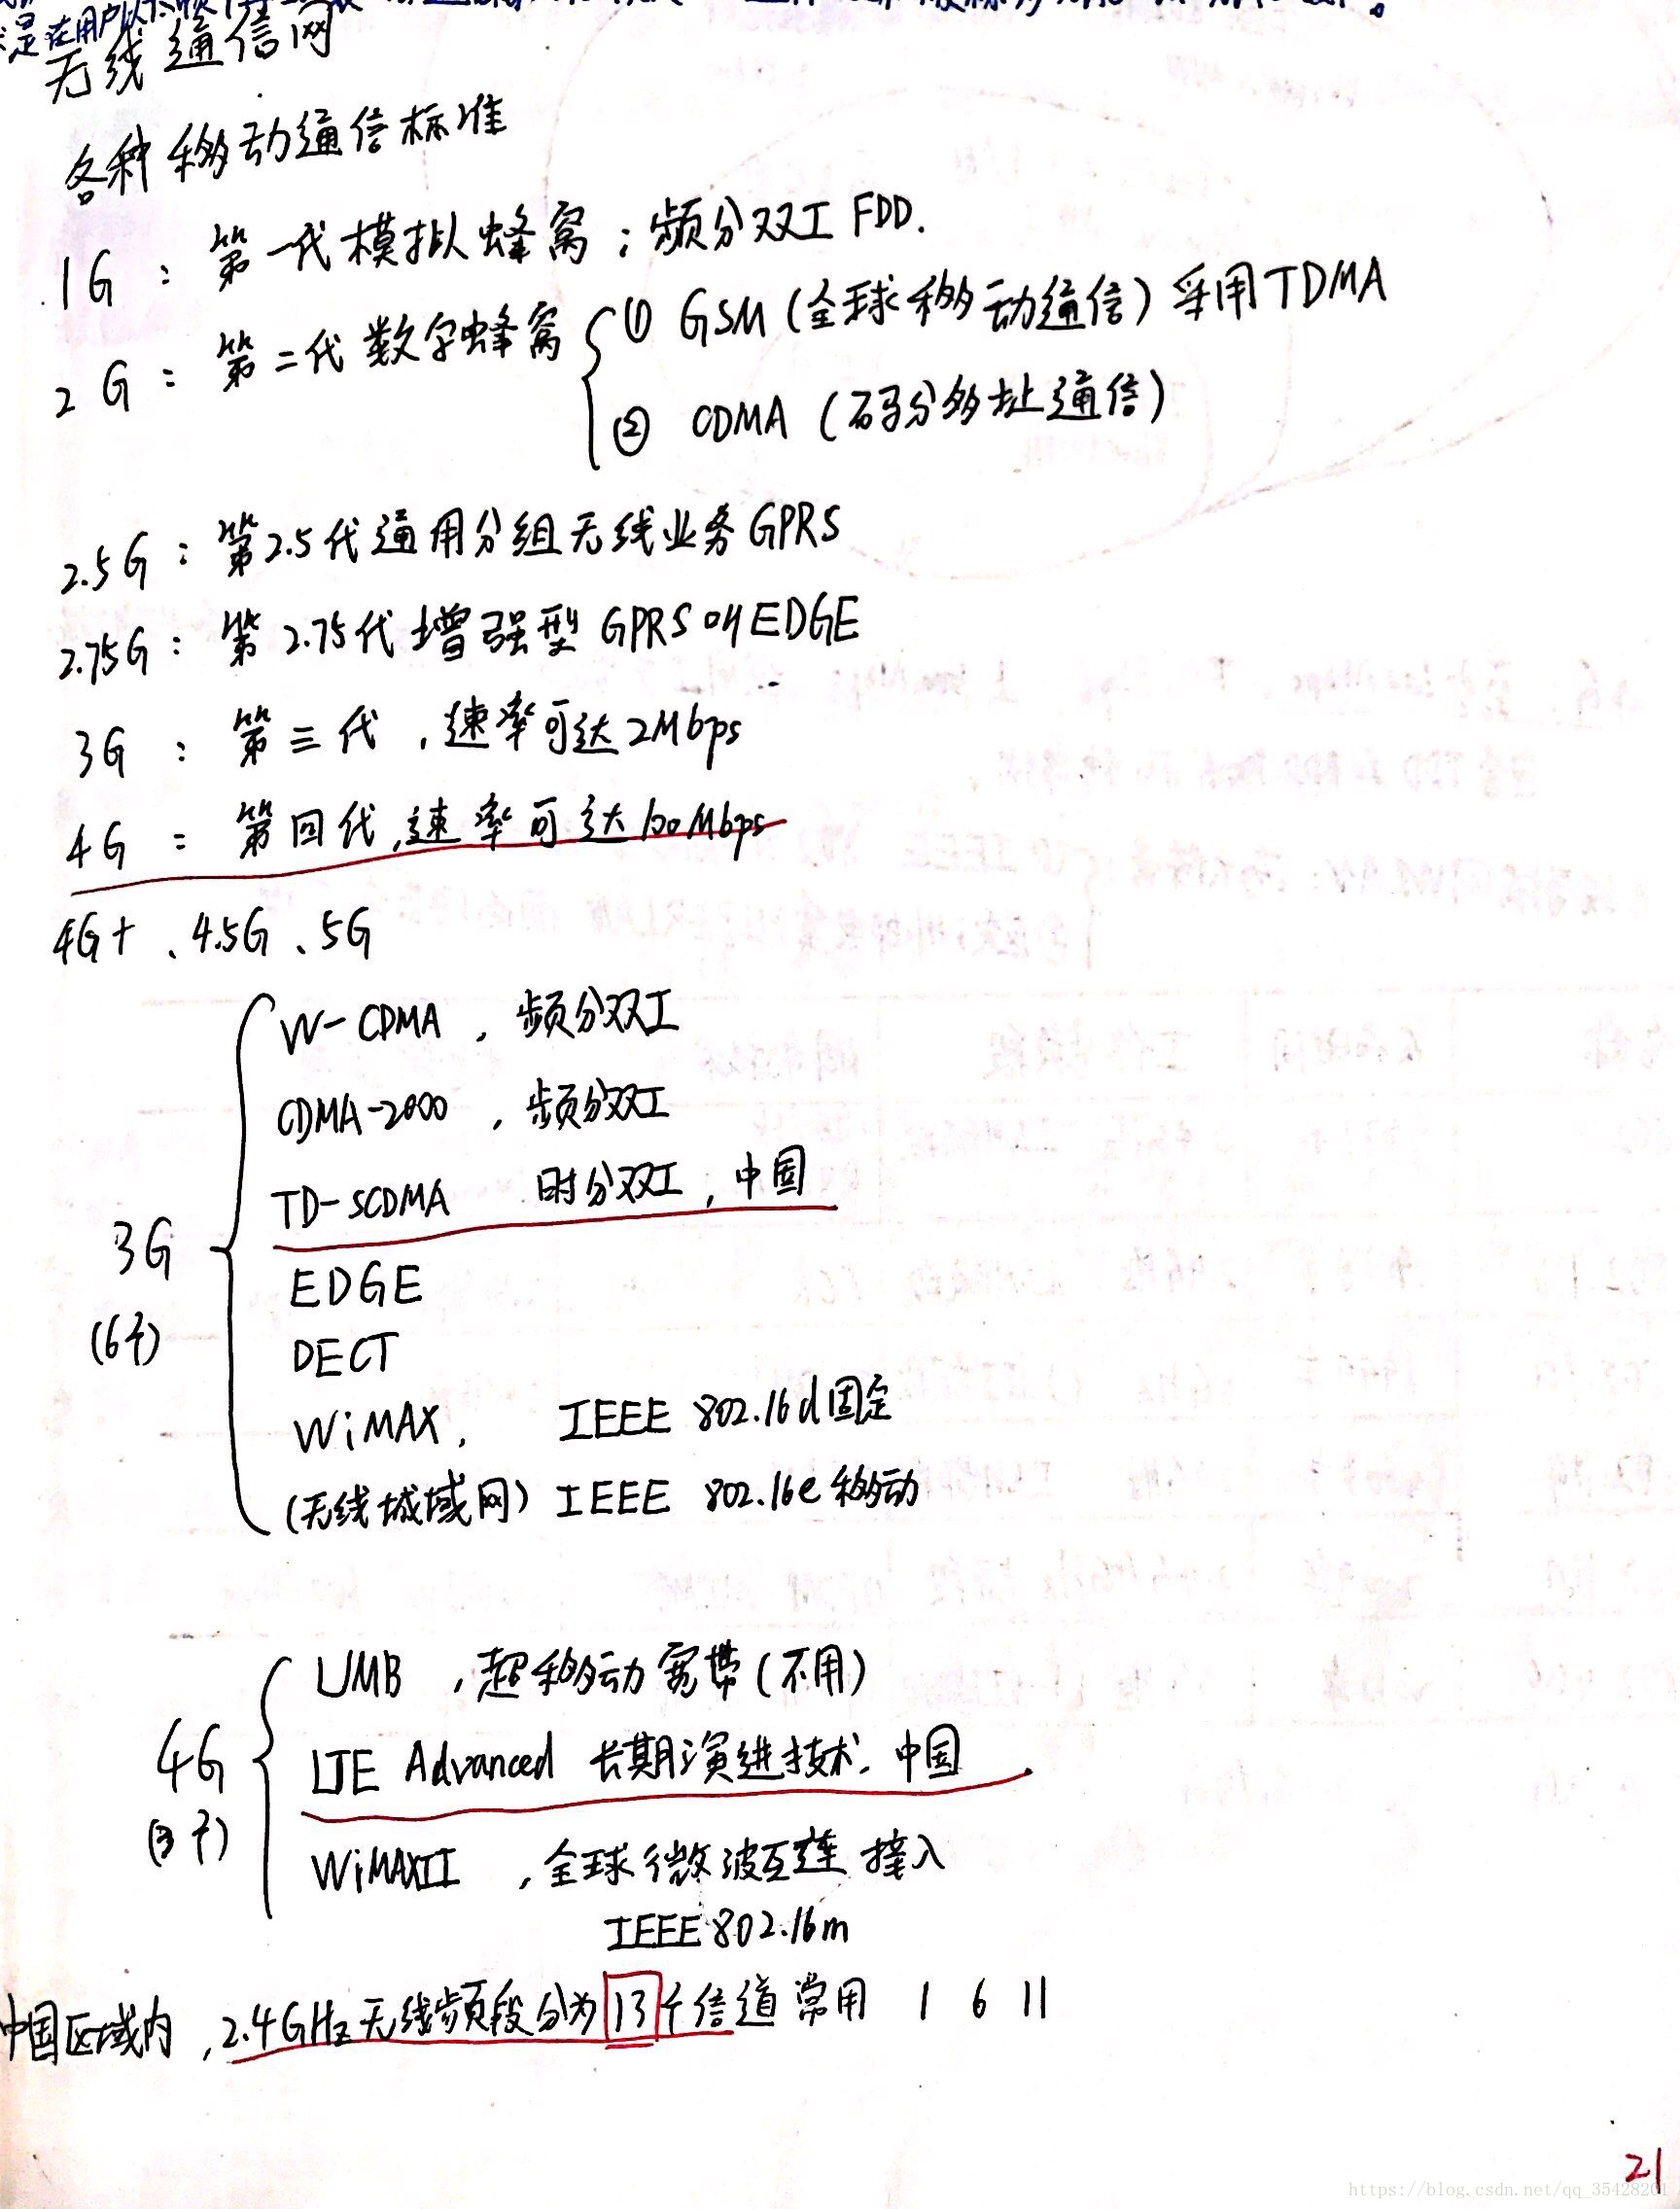 是在用户以
无线通信网
各种移动通信标准
1G：第一代模拟蜂窝；频分双工 FDD.
2G：第二代数字蜂窝 ① GSM（全球移动通信）采用TDMA
② CDMA（码分多址通信）
2.5G：第2.5代通用分组无线业务GPRS
2.75G：第2.75代增强型GPRS叫EDGE
3G：第三代，速率可达2Mbps
4G：第四代，速率可达100Mbps
4G+、4.5G、5G
3G
(6个)
W-CDMA，频分双工
CDMA-2000，频分双工
TD-SCDMA 时分双工，中国
EDGE
DECT
WiMAX， IEEE 802.16d固定
（无线城域网）IEEE 802.16e移动
4G
(3个)
UMB，超移动宽带（不用）
LTE Advanced 长期演进技术，中国
WiMAXII，全球微波互连接入
IEEE 802.16m
中国区域内，2.4GHz无线频段分为13个信道 常用 1 6 11
21
https://blog.csdn.net/qq_35428201